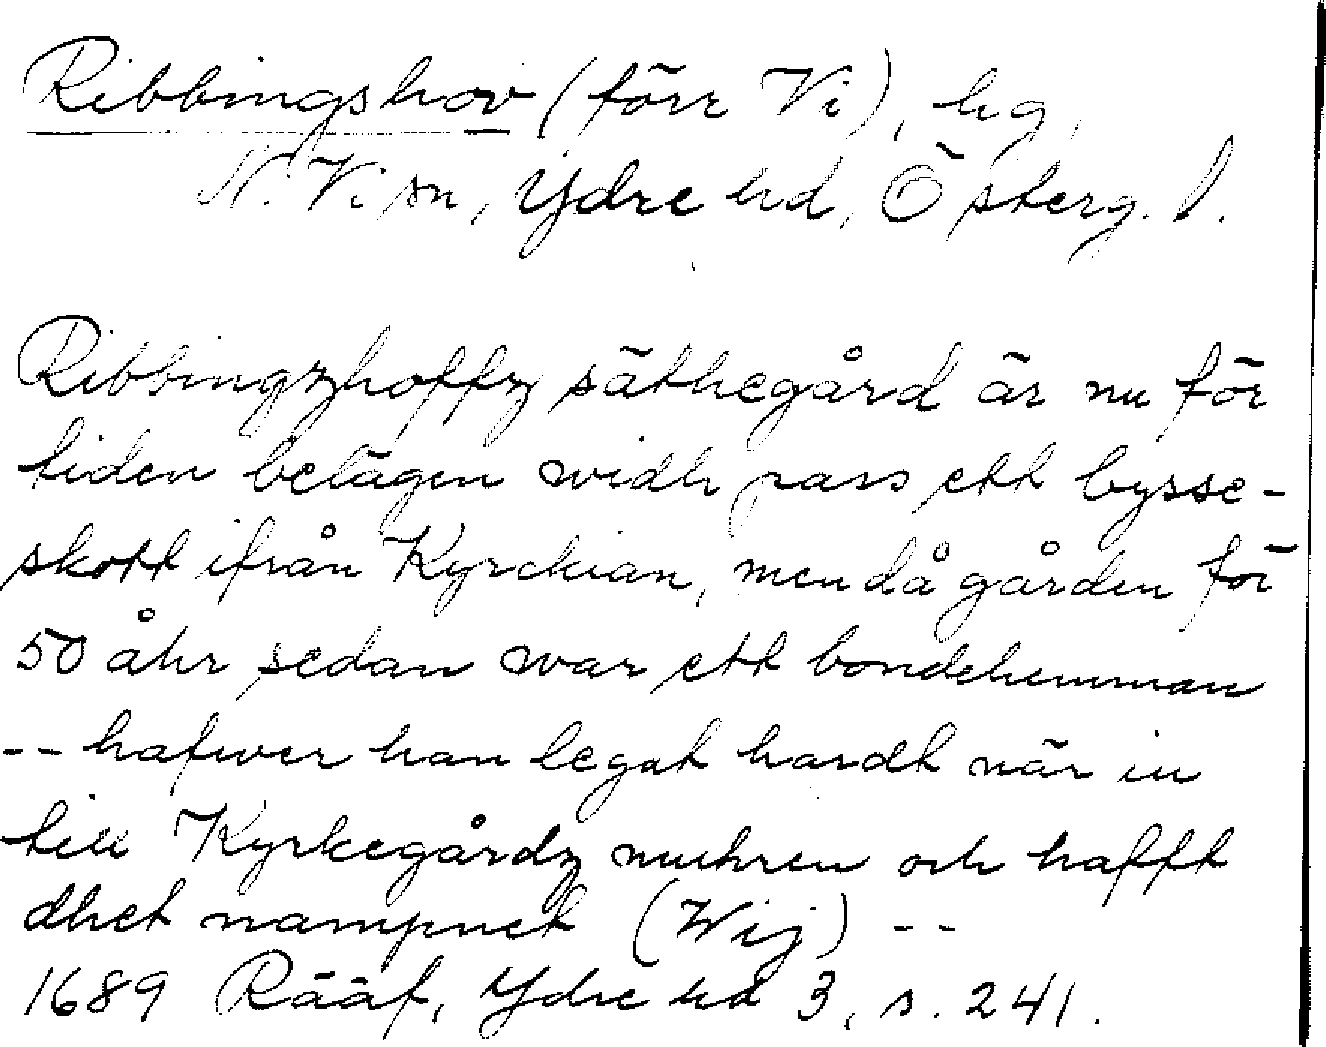 Ribbingshov (förr Vi), hg,
N. Vi sn, Ydre hd, Österg. l.
Ribbingzhoffz säthegård är nu för
tiden belägen widh pass ett bysse-
skott ifrån Kyrckian, men då gården för
50 åhr sedan war ett bondehemman
-- hafwer han legat hardt när in
till Kyrkegårdz muhren och hafft
dhet nampnet (Wij) --
1689 Rääf, Ydre hd 3, s. 241.